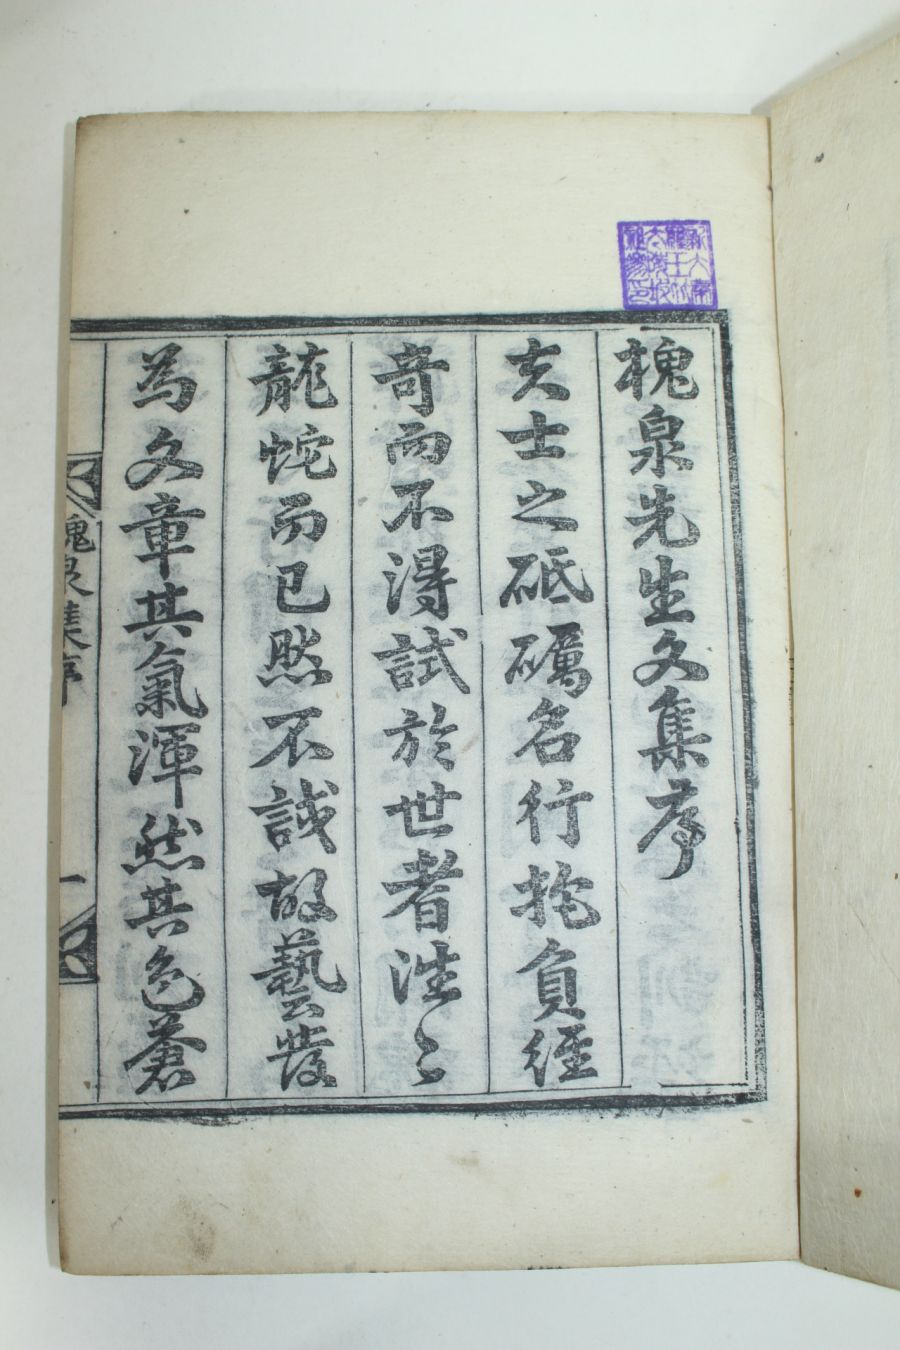 槐泉先生文集序
夫士之砥礪名行抱負經
奇而不得試於世者往〻
龍蛇而已然不試故藝發
為文章其氣渾然其色蒼
槐泉集序
一